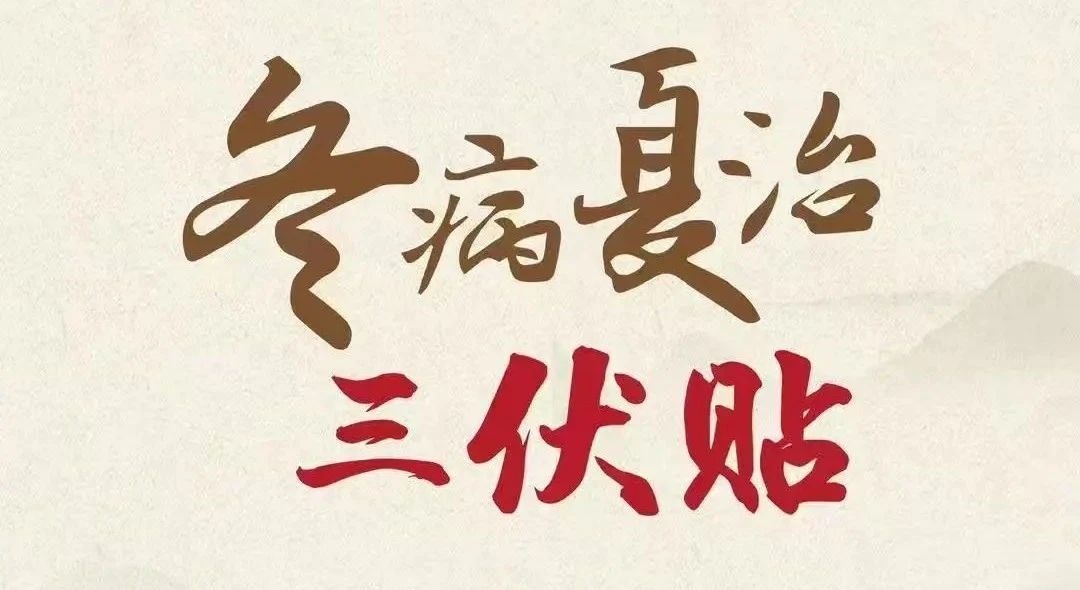 冬病夏治
三伏贴